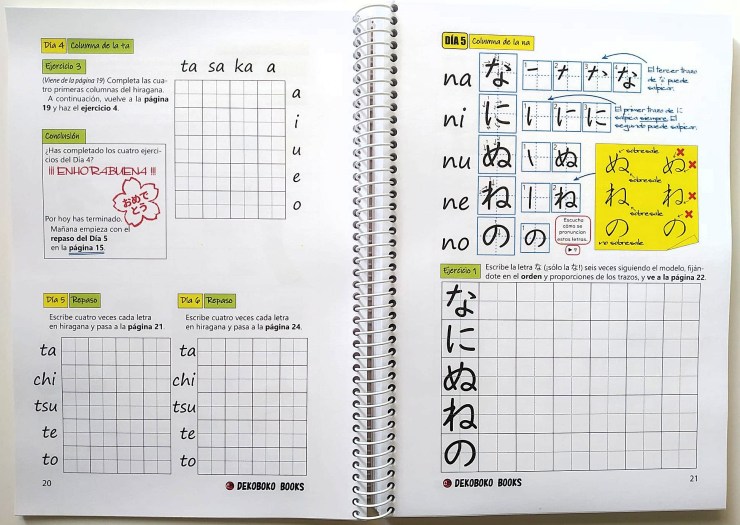 Día 4 Columna de la ta
Ejercicio 3
(Viene de la página 19) Completa las cua-
tro primeras columnas del hiragana.
A continuación, vuelve a la página
19 y haz el ejercicio 4.
Conclusión
¿Has completado los cuatro ejerci-
cios del Día 4?
¡¡¡ ENHORABUENA !!!
おめで
とう
Por hoy has terminado.
Mañana empieza con el
repaso del Día 5
en la página 15.
ta sa ka a
a
i
u
e
o
Día 5 Repaso
Escribe cuatro veces cada letra
en hiragana y pasa a la página 21.
ta
chi
tsu
te
to
Día 6 Repaso
Escribe cuatro veces cada letra
en hiragana y pasa a la página 24.
ta
chi
tsu
te
to
20
DEKOBOKO BOOKS
DÍA 5 Columna de la na
na な な
El tercer trazo
de な puede
salpicar.
ni に に
El primer trazo de に
salpica siempre. El
segundo puede salpicar.
nu ぬ ぬ
ne ね ね
no の の
Escucha
cómo se
pronuncian
estas letras.
sobresale
ぬ ぬ
sobresale
ね ね
sobresale
の の
no sobresale
Ejercicio 1
Escribe la letra な (¡sólo la な!) seis veces siguiendo el modelo, fiján-
dote en el orden y proporciones de los trazos, y ve a la página 22.
な
に
ぬ
ね
の
DEKOBOKO BOOKS
21